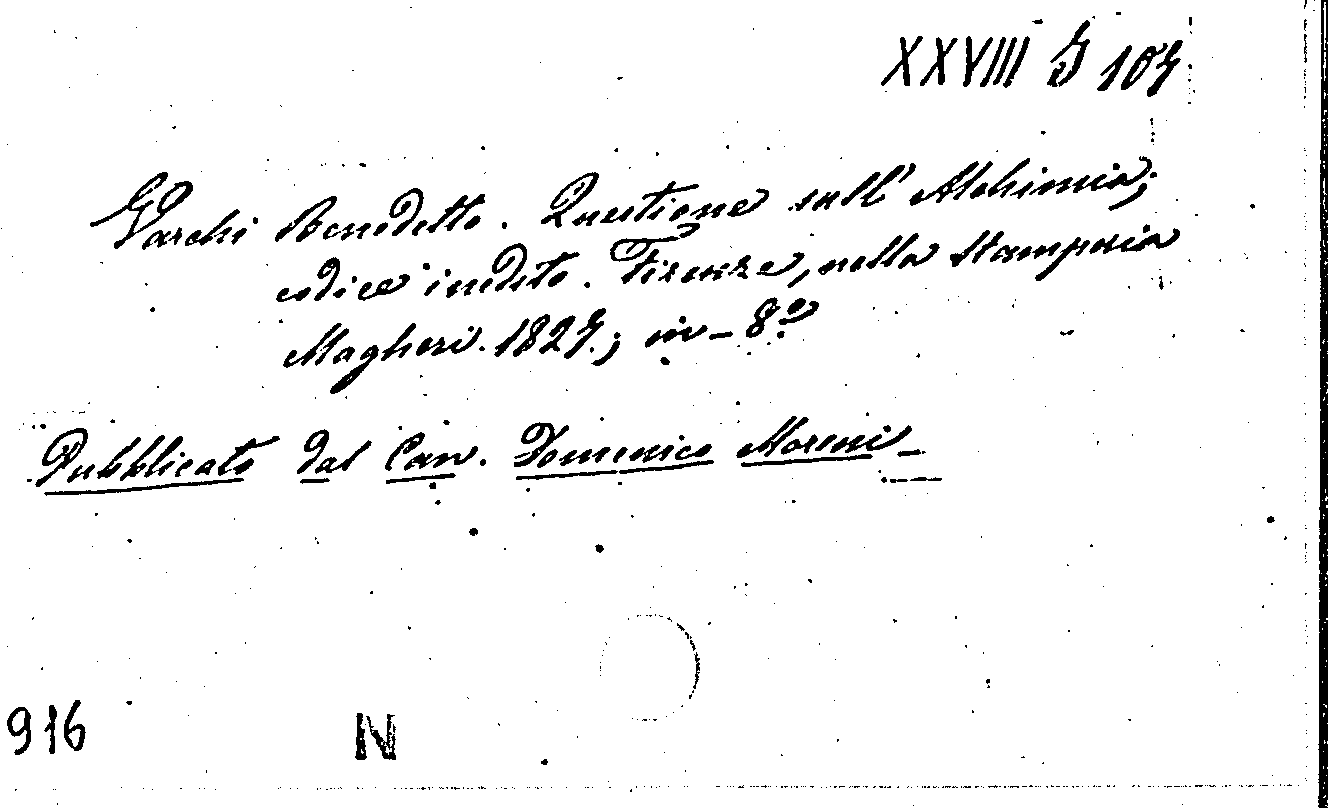 XXVIII G 107
Varchi Benedetto. Questione sull' Alchimia;
codice inedito. Firenze, nella Stamperia
Magheri. 1827.; in-8º
Pubblicato dal Can. Domenico Moreni_
916
N